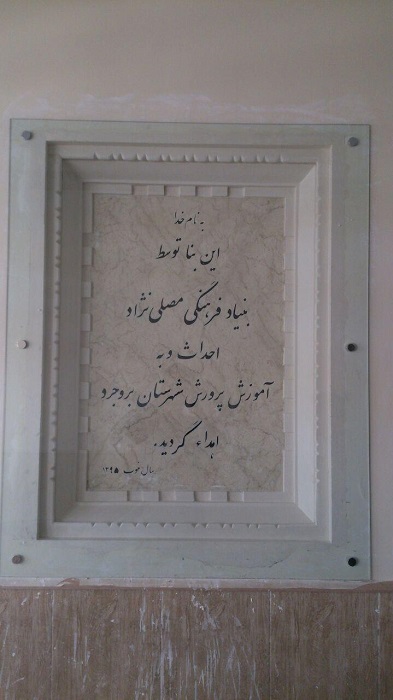 به نام خدا
این بنا توسط
بنیاد فرهنگی مصلی نژاد
احداث و به
آموزش پرورش شهرستان بروجرد
اهداء گردید.
سال ۱۳۹۵